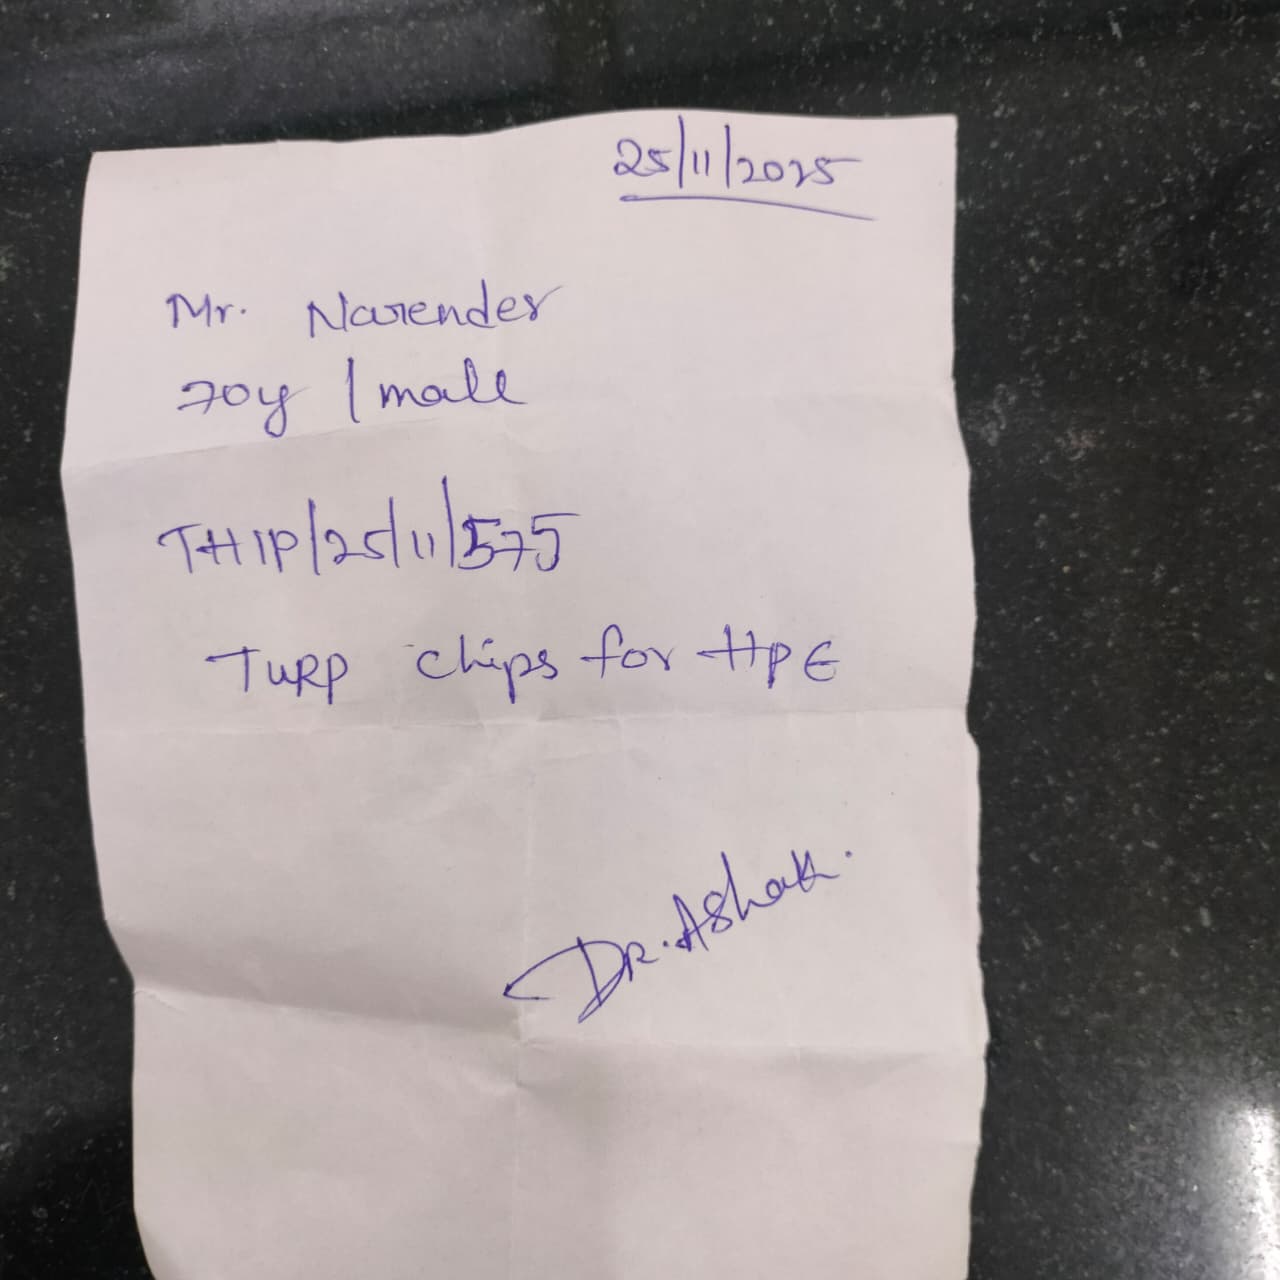 25/11/2025
Mr. Narender
70y / male
THIP/25/11/575
TURP chips for HPE
Dr. Ashok.